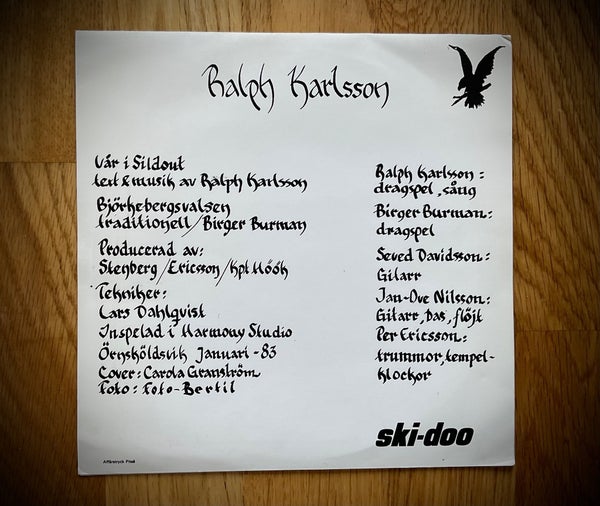 Ralph Karlsson
Vår i Sildout
text & musik av Ralph Karlsson
Björkebergsvalsen
traditionell/Birger Burman
Producerad av:
Stenberg/Ericsson/Kpt Höök
Tekniker:
Lars Dahlqvist
Inspelad i Harmony Studio
Örnsköldsvik Januari-83
Cover: Carola Granström
Foto: Foto-Bertil
Ralph Karlsson:
dragspel, sång
Birger Burman:
dragspel
Seved Davidsson:
Gitarr
Jan-Ove Nilsson:
Gitarr, bas, flöjt
Per Ericsson:
trummor, tempel-
klockor
ski-doo
Affärstryck Piteå